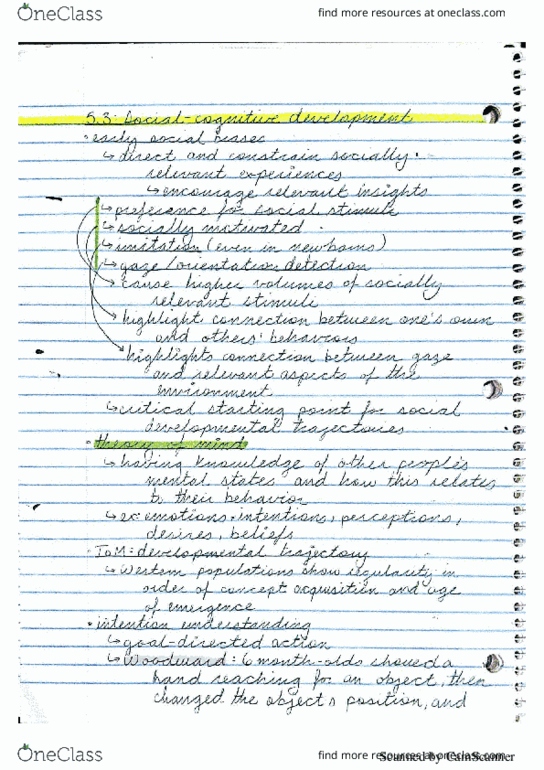 OneClass
find more resources at oneclass.com
5.3: Social-cognitive development
• early social biases
↳ direct and constrain socially
relevant experiences
↳ encourage relevant insights
↳ preference for social stimuli
↳ socially motivated
↳ imitation (even in newborns)
↳ gaze/orientation detection
↳ cause higher volumes of socially
relevant stimuli
↳ highlight connection between one's own
and others' behaviors
↳ highlights connection between gaze
and relevant aspects of the
environment
↳ critical starting point for social
developmental trajectories
• theory of mind
↳ having knowledge of other people's
mental states and how this relates
to their behavior
↳ ex: emotions, intentions, perceptions,
desires, beliefs
ToM: developmental trajectory
↳ Western populations show regularity in
order of concept acquisition and age
of emergence
• intention understanding
↳ goal-directed action
↳ Woodward: 6 month-olds showed a
hand reaching for an object, then
changed the object's position, and
OneClass
find more resources at oneclass.com
Scanned by CamScanner